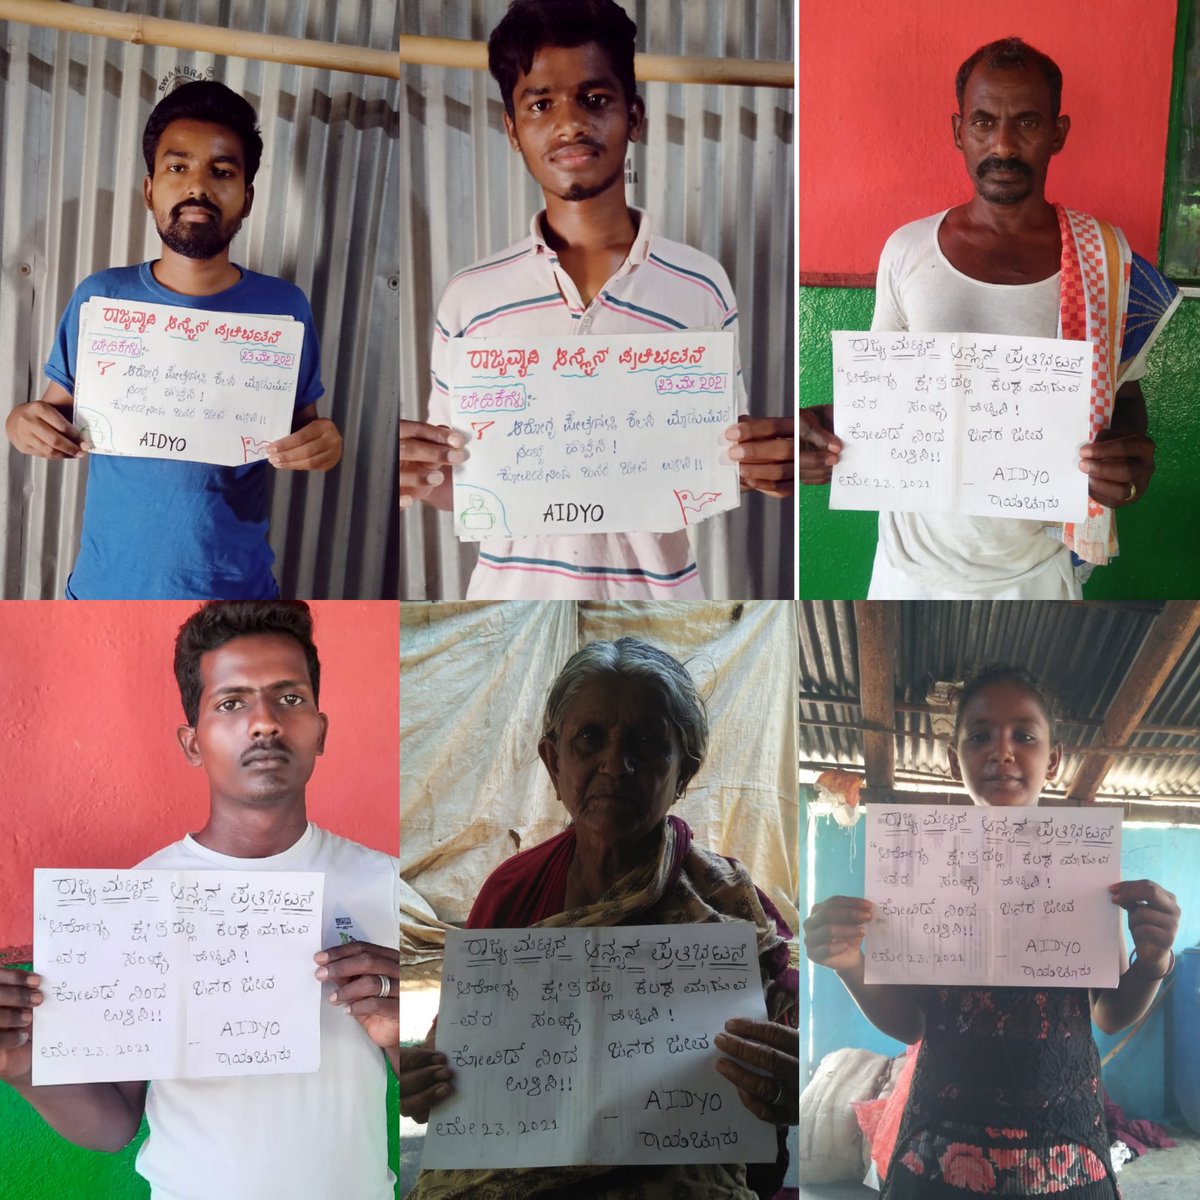 SWAN BRA
ರಾಜ್ಯವ್ಯಾಪಿ ಆನ್ಲೈನ್ ಪ್ರತಿಭಟನೆ
ಬೇಡಿಕೆಗಳು:-
23 ಮೇ 2021
ಆರೋಗ್ಯ ಕ್ಷೇತ್ರದಲ್ಲಿ ಕೆಲಸ ಮಾಡುವವರ
ಸಂಖ್ಯೆ ಹೆಚ್ಚಿಸಿ!
ಕೋವಿಡ್ ನಿಂದ ಜನರ ಜೀವ ಉಳಿಸಿ!!
AIDYO
ರಾಜ್ಯವ್ಯಾಪಿ ಆನ್ಲೈನ್ ಪ್ರತಿಭಟನೆ
23 ಮೇ 2021
ಬೇಡಿಕೆಗಳು:-
ಆರೋಗ್ಯ ಕ್ಷೇತ್ರದಲ್ಲಿ ಕೆಲಸ ಮಾಡುವವರ
ಸಂಖ್ಯೆ ಹೆಚ್ಚಿಸಿ!
ಕೋವಿಡ್ ನಿಂದ ಜನರ ಜೀವ ಉಳಿಸಿ!!
AIDYO
ರಾಜ್ಯ ಮಟ್ಟದ ಆನ್ಲೈನ್ ಪ್ರತಿಭಟನೆ
"ಆರೋಗ್ಯ ಕ್ಷೇತ್ರದಲ್ಲಿ ಕೆಲಸ ಮಾಡುವ
-ವರ ಸಂಖ್ಯೆ ಹೆಚ್ಚಿಸಿ!
ಕೋವಿಡ್ ನಿಂದ ಜನರ ಜೀವ
ಉಳಿಸಿ!!
ಮೇ 23, 2021 - AIDYO
ರಾಯಚೂರು
ರಾಜ್ಯ ಮಟ್ಟದ ಆನ್ಲೈನ್ ಪ್ರತಿಭಟನೆ
"ಆರೋಗ್ಯ ಕ್ಷೇತ್ರದಲ್ಲಿ ಕೆಲಸ ಮಾಡುವ
-ವರ ಸಂಖ್ಯೆ ಹೆಚ್ಚಿಸಿ!
ಕೋವಿಡ್ ನಿಂದ ಜನರ ಜೀವ
ಉಳಿಸಿ!!
ಮೇ 23, 2021 - AIDYO
ರಾಯಚೂರು
ರಾಜ್ಯ ಮಟ್ಟದ ಆನ್ಲೈನ್ ಪ್ರತಿಭಟನೆ
"ಆರೋಗ್ಯ ಕ್ಷೇತ್ರದಲ್ಲಿ ಕೆಲಸ ಮಾಡುವ
-ವರ ಸಂಖ್ಯೆ ಹೆಚ್ಚಿಸಿ!
ಕೋವಿಡ್ ನಿಂದ ಜನರ ಜೀವ
ಉಳಿಸಿ!!
ಮೇ 23, 2021 - AIDYO
ರಾಯಚೂರು
ರಾಜ್ಯ ಮಟ್ಟದ ಆನ್ಲೈನ್ ಪ್ರತಿಭಟನೆ
"ಆರೋಗ್ಯ ಕ್ಷೇತ್ರದಲ್ಲಿ ಕೆಲಸ ಮಾಡುವ
-ವರ ಸಂಖ್ಯೆ ಹೆಚ್ಚಿಸಿ!
ಕೋವಿಡ್ ನಿಂದ ಜನರ ಜೀವ
ಉಳಿಸಿ!!
ಮೇ 23, 2021 - AIDYO
ರಾಯಚೂರು